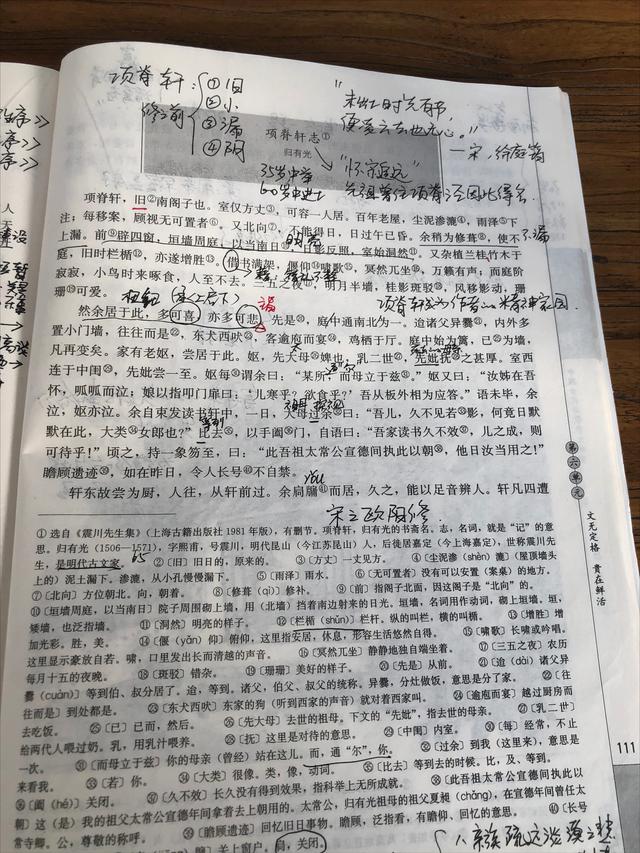 项脊轩：①旧
②小
修前 ③漏
④阴
"未杜时先有部，
一宋，
项脊轩志①
归有光
35岁中举
60岁中进士
"怀宗追远"
项脊轩，旧②南阁子也。室仅方丈③，可容一人居。百年老屋，尘泥渗漉④，雨泽⑤下
注；每移案，顾视无可置者⑥。又北向⑦，不能得日，日过午已昏。余稍为修葺⑧，使不
上漏。前⑨辟四窗，垣墙周庭，以当南日⑩，日影反照，室始洞然⑪。又杂植兰桂竹木于
庭，旧时栏楯⑫，亦遂增胜⑬。借书满架，偃仰⑭啸歌⑮，冥然兀坐⑯，万籁有声；而庭阶
寂寂，小鸟时来啄食，人至不去。三五之夜⑰，明月半墙，桂影斑驳⑱，风移影动，珊
珊⑲可爱。
不漏
然余居于此，多可喜，亦多可悲。先是⑳，庭中通南北为一。迨诸父异爨㉑，内外多
置小门墙，往往而是㉒，东犬西吠㉓，客逾庖而宴㉔，鸡栖于厅。庭中始为篱，已㉕为墙，
凡再变矣。家有老妪，尝居于此。妪，先大母㉖婢也，乳二世㉗，先妣抚㉘之甚厚。室西
连于中闺㉙，先妣尝一至。妪每㉚谓余曰："某所，而母立于兹㉛。"妪又曰："汝姊在吾
怀，呱呱而泣；娘以指叩门扉曰：'儿寒乎？欲食乎？'吾从板外相为应答。"语未毕，余
泣，妪亦泣。余自束发读书轩中，一日，大母过余㉜曰："吾儿，久不见若㉝影，何竟日默
默在此，大类㉞女郎也？"比去㉟，以手阖㊱门，自语曰："吾家读书久不效㊲，儿之成，则
可待乎！"顷之，持一象笏至，曰："此吾祖太常公宣德间执此以朝㊳，他日汝当用之！"
瞻顾遗迹㊴，如在昨日，令人长号㊵不自禁。
轩东故尝为厨，人往，从轩前过。余扃牖㊶而居，久之，能以足音辨人。轩凡四遭
宋之欧阳修
① 选自《震川先生集》（上海古籍出版社 1981 年版），有删节。项脊轩，归有光的书斋名。志，名词，就是“记”的意
思。归有光（1506—1571），字熙甫，号震川，明代昆山（今江苏昆山）人，后徙居嘉定（今上海嘉定），世称震川先
生，是明代古文家。 65 ②〔旧〕旧日的，原来的。 ③〔方丈〕一丈见方。 ④〔尘泥渗（shèn）漉〕（屋顶墙头
上的）泥土漏下。渗漉，从小孔慢慢漏下。 ⑤〔雨泽〕雨水。 ⑥〔无可置者〕没有可以安置（案桌）的地方。
⑦〔北向〕方位朝北。向，朝着。 ⑧〔修葺（qì）〕修补。 ⑨〔前〕指阁子北面，因这阁子是“北向”的。
⑩〔垣墙周庭，以当南日〕院子周围砌上墙，用（北墙）挡着南边射来的日光。垣墙，名词用作动词，砌上垣墙。垣，
矮墙，也泛指墙。 ⑪〔洞然〕明亮的样子。 ⑫〔栏楯（shǔn）〕栏杆。纵的叫栏，横的叫楯。 ⑬〔增胜〕增
加光彩。胜，美。 ⑭〔偃（yǎn）仰〕俯仰，这里指安居，休息，形容生活悠然自得。 ⑮〔啸歌〕长啸或吟唱。
这里显示豪放自若。啸，口里发出长而清越的声音。 ⑯〔冥然兀坐〕静静地独自端坐着。 ⑰〔三五之夜〕农历
每月十五的夜晚。 ⑱〔斑驳〕错杂。 ⑲〔珊珊〕美好的样子。 ⑳〔先是〕从前。 ㉑〔迨（dài）诸父异
爨（cuàn）〕等到伯、叔分居了。迨，等到。诸父，伯父、叔父的统称。异爨，分灶做饭，意思是分了家。 ㉒〔往
往而是〕到处都是。 ㉓〔东犬西吠〕东家的狗（听到西家的声音）就对着西家叫。 ㉔〔逾庖而宴〕越过厨房而
去吃饭。 ㉕〔已〕已而，然后。 ㉖〔先大母〕去世的祖母。下文的“先妣”，指去世的母亲。 ㉗〔乳二世〕
给两代人喂过奶。乳，用乳汁喂养。 ㉘〔抚〕这里是对待的意思。 ㉙〔中闺〕内室。 ㉚〔每〕经常，不止
一次。 ㉛〔而母立于兹〕你的母亲（曾经）站在这儿。而，通“尔”，你。 ㉜〔过余〕到我（这里来），意思是
来看我。 ㉝〔若〕你。 ㉞〔大类〕很像。类，像，动词。 ㉟〔比去〕等到去的时候。比，及，等到。
㊱〔阖（hé）〕关闭。 ㊲〔久不效〕长久没有得到效果，指科举上无所成就。 ㊳〔此吾祖太常公宣德间执此以
朝〕这（是）我的祖父太常公宣德年间拿着去上朝用的。太常公，归有光祖母的祖父夏昶（chǎng），在宣德年间曾任太
常寺卿。公，尊敬的称呼。 ㊴〔瞻顾遗迹〕回忆旧日事物。瞻顾，泛指看，有瞻仰、回忆的意思。 ㊵〔长号
关上窗户。扃，关闭。
第六单元
文无定格 贵在鲜活
111